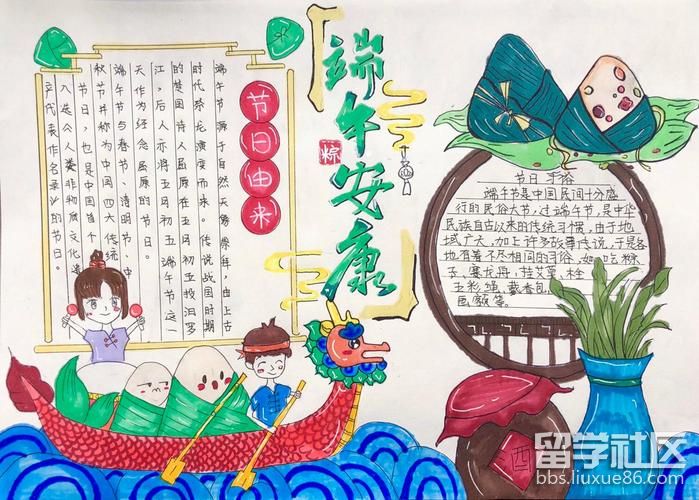 端午安康
粽
节日由来
端午节源于自然天象崇拜,由上古
时代祭龙演变而来。传说战国时期
的楚国诗人屈原在五月初五投汨罗
江,后人亦将五月初五端午节这一
天作为纪念屈原的节日。
端午节与春节、清明节、中
秋节并称为中国四大传统
节日,也是中国首个
入选人类非物质文化遗
产代表作名录的节日。
节日习俗
端午节是中国民间十分盛
行的民俗大节,过端午节,是中华
民族自古以来的传统习惯,由于地
域广大,加上许多故事传说,于是各
地有着不尽相同的习俗,如:吃粽
子、赛龙舟、挂艾草、拴
五彩绳、戴香包、
画额等。
酒
留学社区
bbs.liuxue86.com